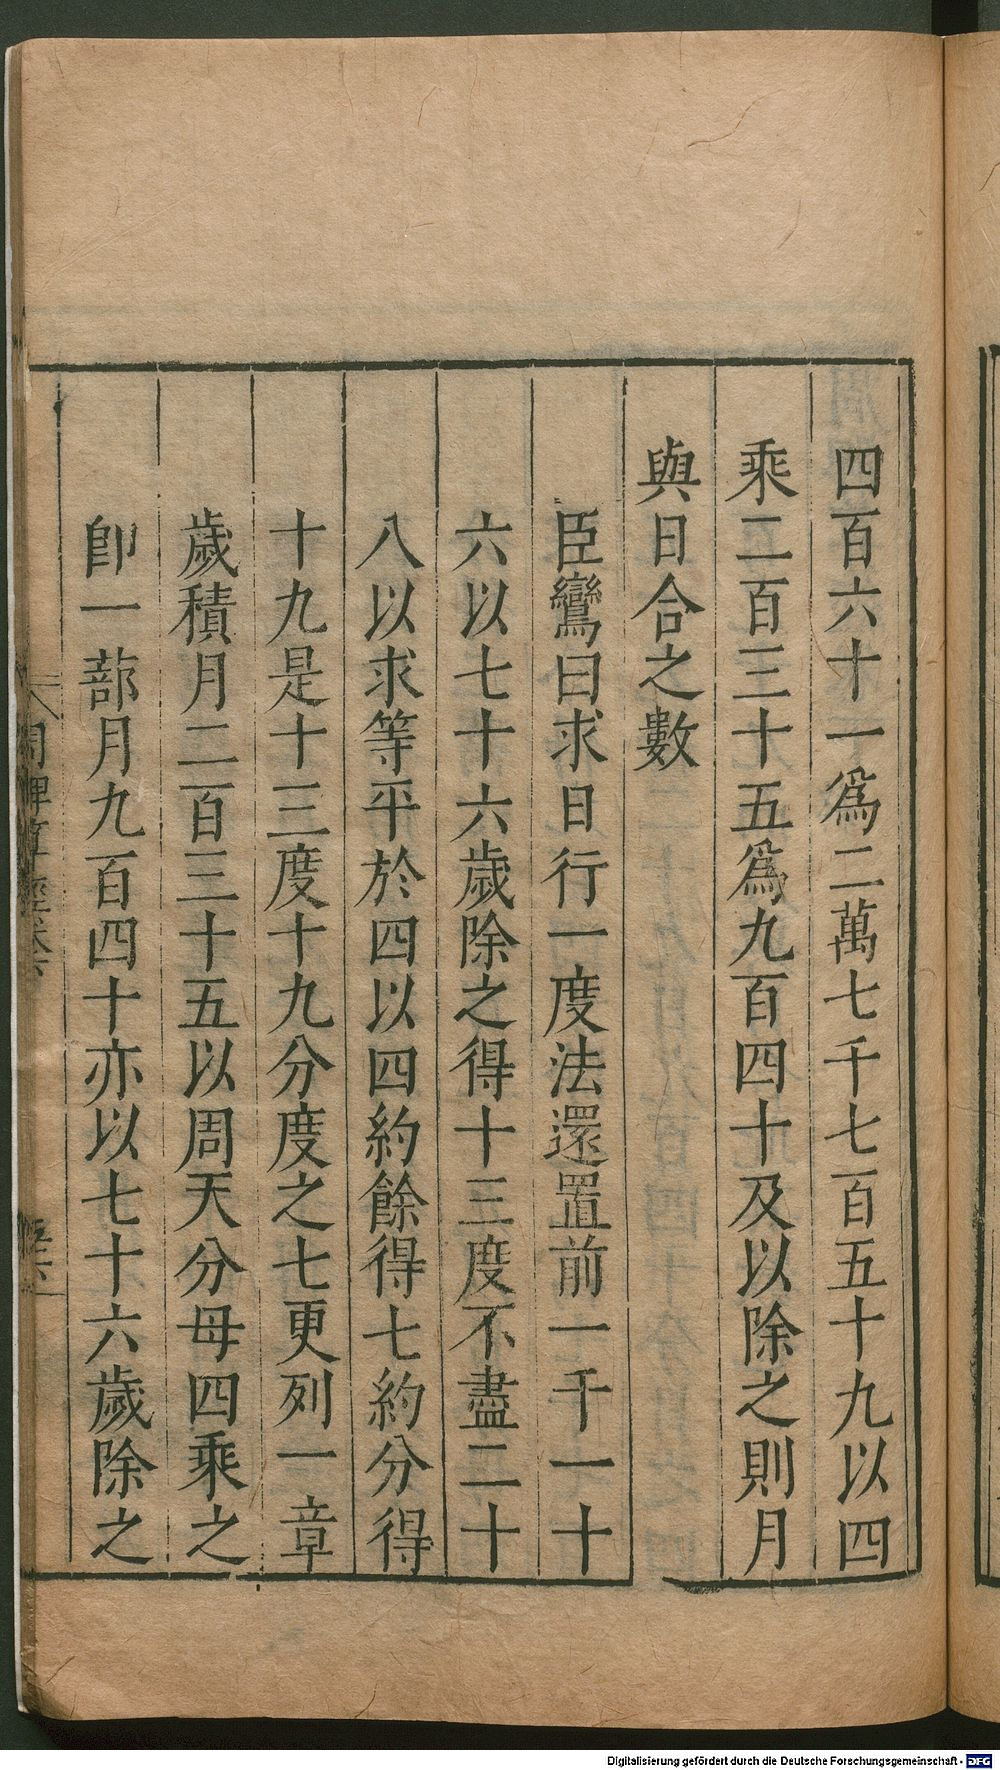 四百六十一爲二萬七千七百五十九以四
乘二百三十五爲九百四十及以除之則月
與日合之數
臣鸞曰求日行一度法還置前一千一十
六以七十六歲除之得十三度不盡二十
八以求等平於四以四約餘得七約分得
十九是十三度十九分度之七更列一章
歲積月二百三十五以周天分母四乘之
卽一蔀月九百四十亦以七十六歲除之
Digitalisierung gefördert durch die Deutsche Forschungsgemeinschaft - DFG